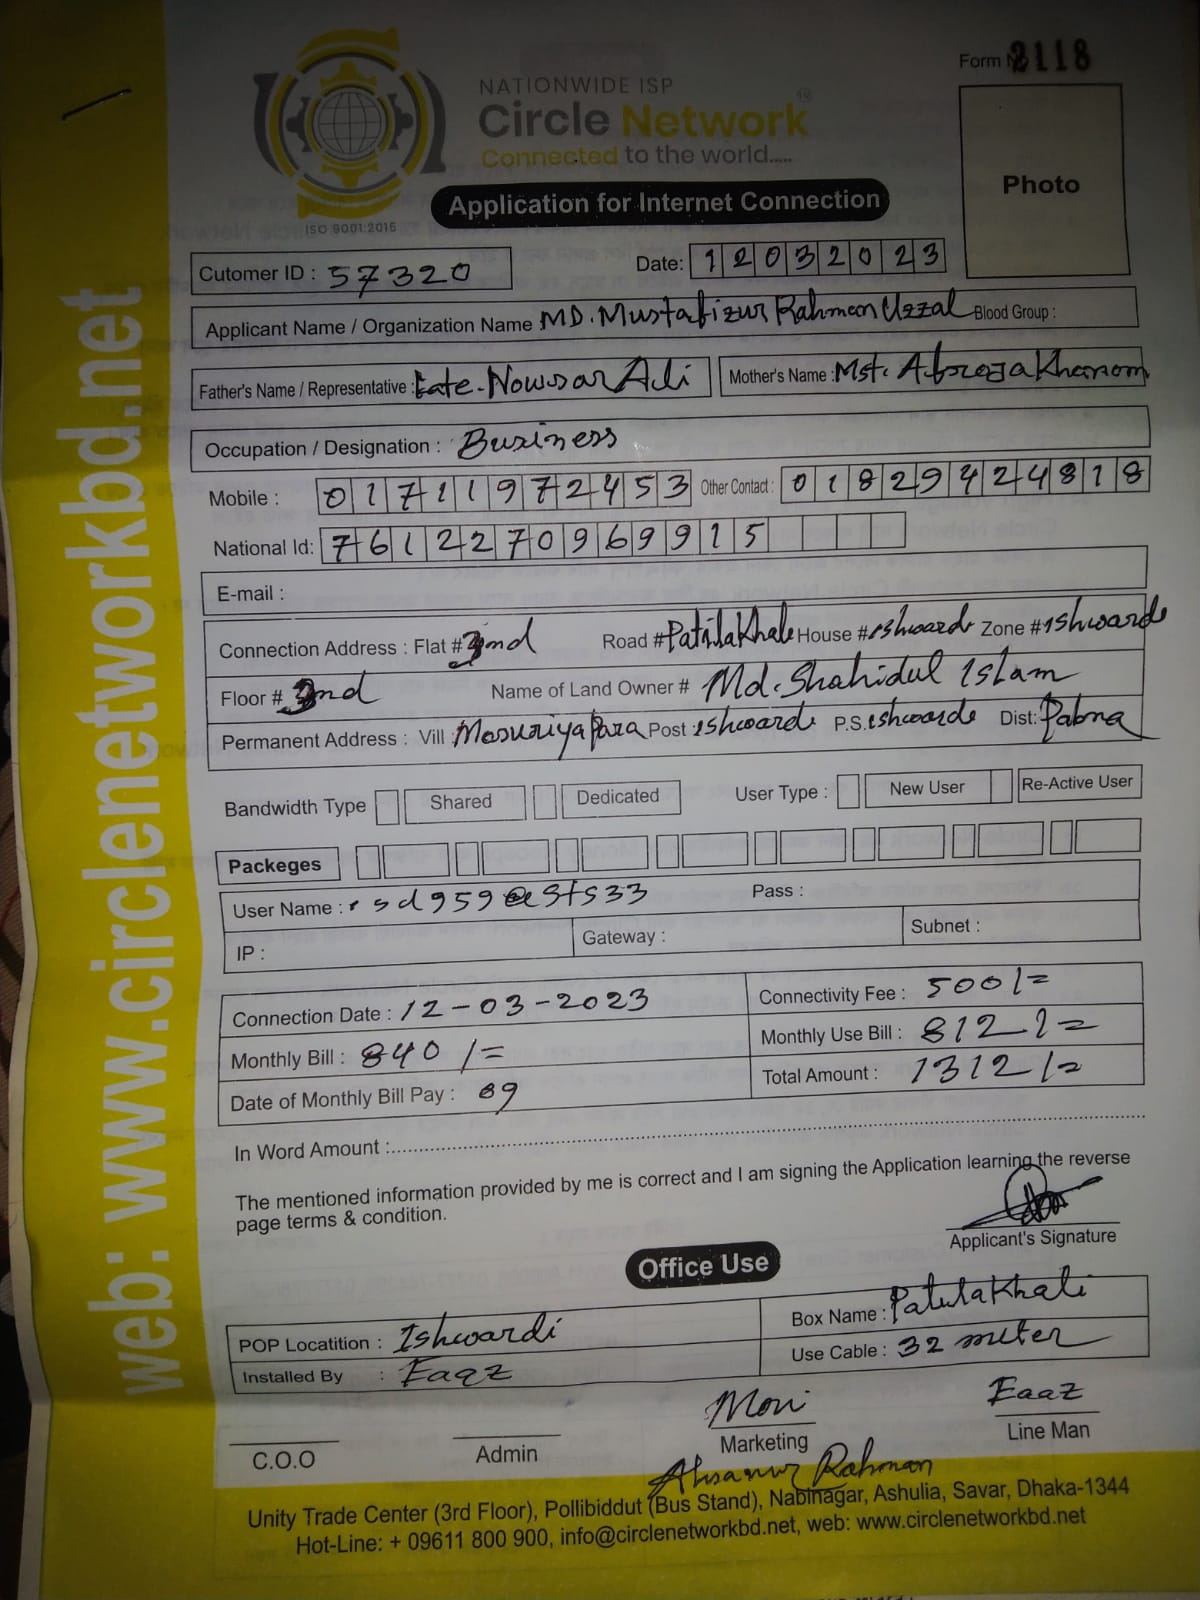 Form No 2118
NATIONWIDE ISP
Circle Network
Connected to the world.....
ISO 9001:2015
Photo
Application for Internet Connection
Cutomer ID : 57320
Date: 12032023
Applicant Name / Organization Name MD. Mustafizur Rahman Uzzal Blood Group :
Father's Name / Representative : Late. Nowsar Ali Mother's Name : Mst. Afroza Khanom
Occupation / Designation : Business
Mobile : 01711972453 Other Contact : 01829424818
National Id: 7612270969915
E-mail :
Connection Address : Flat # 2nd Road # House # ishwardi Zone # ishwardi
Floor # 2nd Name of Land Owner # Md. Shahidul Islam
Permanent Address : Vill Masuriyapara Post ishwardi P.S. ishwardi Dist: Pabna
Bandwidth Type Shared Dedicated User Type : New User Re-Active User
Packeges
User Name : sd959@sfs33 Pass :
IP : Gateway : Subnet :
Connection Date : 12-03-2023 Connectivity Fee : 500/=
Monthly Bill : 840/= Monthly Use Bill : 812/=
Date of Monthly Bill Pay : 09 Total Amount : 1312/=
In Word Amount :
The mentioned information provided by me is correct and I am signing the Application learning the reverse
page terms & condition.
Applicant's Signature
Office Use
POP Locatition : Ishwardi Box Name : Patulakhali
Installed By : Eaaz Use Cable : 32 meter
Moni Eaaz
C.O.O Admin Marketing Line Man
Ahsanur Rahman
Unity Trade Center (3rd Floor), Pollibiddut (Bus Stand), Nabinagar, Ashulia, Savar, Dhaka-1344
Hot-Line: + 09611 800 900, info@circlenetworkbd.net, web: www.circlenetworkbd.net
web: www.circlenetworkbd.net